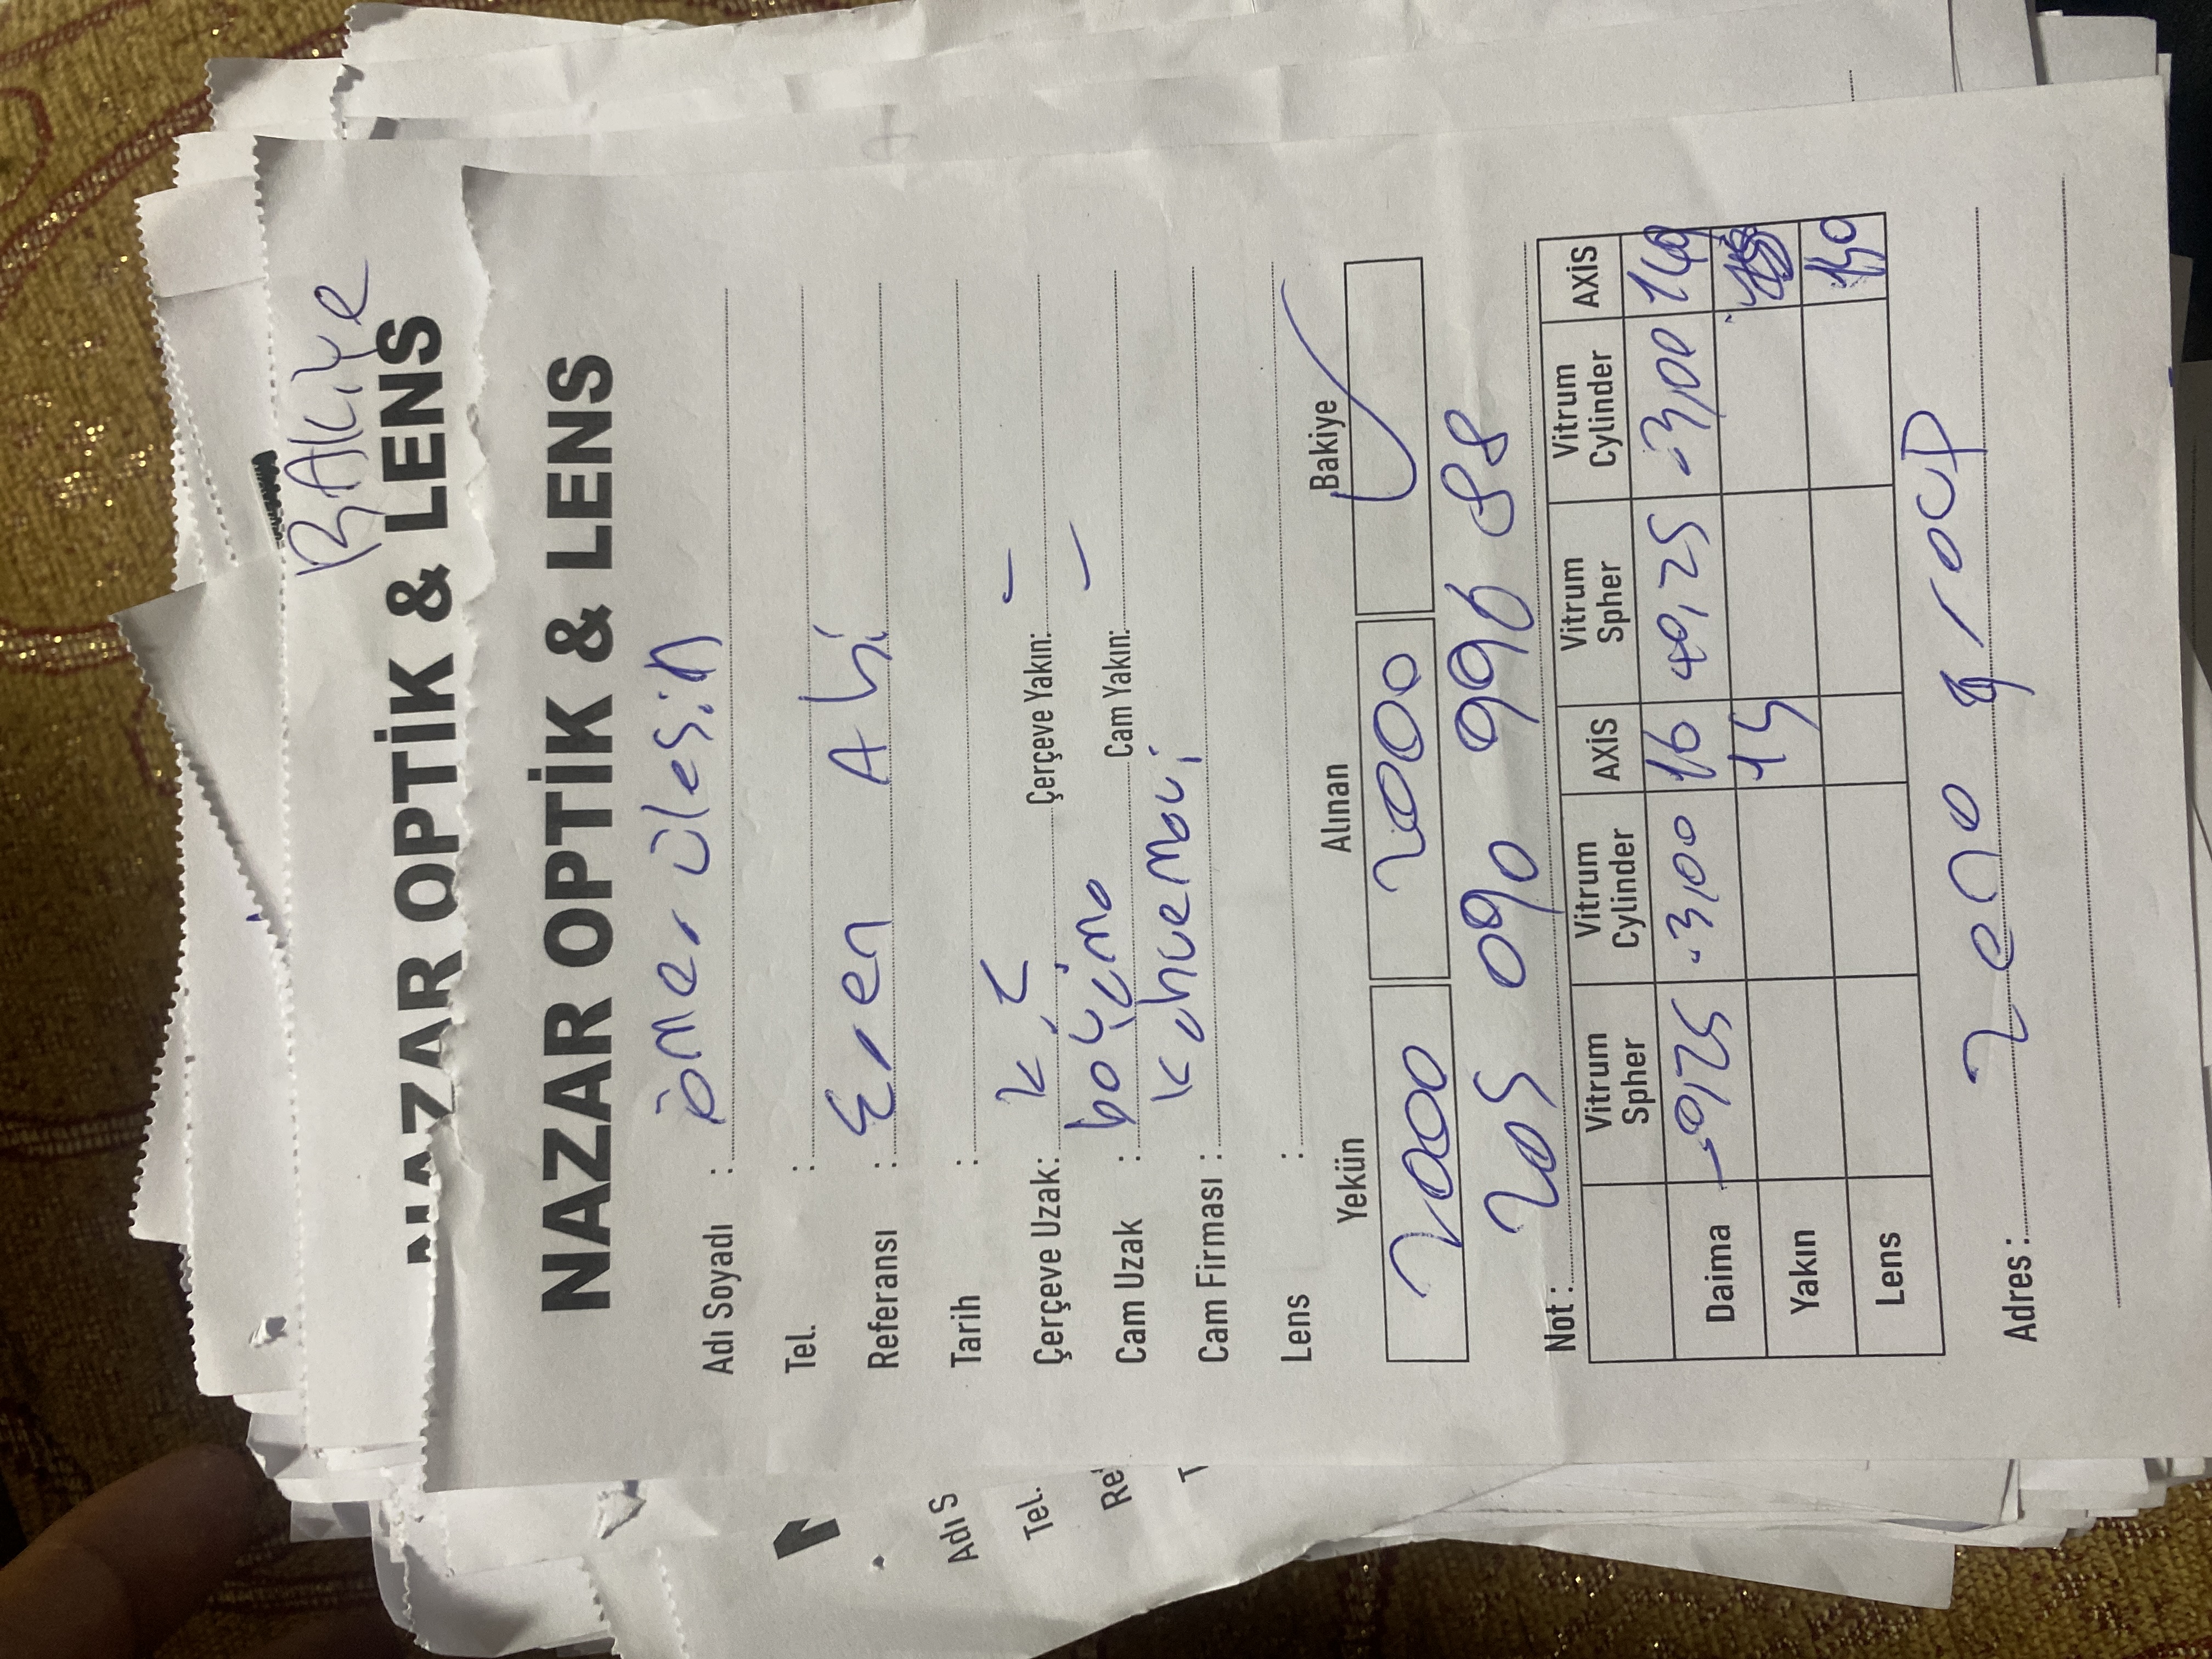 BAKiye
NAZAR OPTİK & LENS
NAZAR OPTİK & LENS
Adı Soyadı : ömer ülesin
Tel. :
Referansı : Eren Abi
Tarih :
Çerçeve Uzak: K.Ç Çerçeve Yakın: -
Cam Uzak : Cam Yakın: -
Cam Firması : Kahvemavi
Lens :
Yekün Alınan Bakiye
2000 2000 ✓
Not : 205 090 996 88
Vitrum Spher Vitrum Cylinder AXİS Vitrum Spher Vitrum Cylinder AXİS
Daima -0,25 -3,00 16 +0,25 -3,00
Yakın 15
Lens 150
Adres : zeno group
N
Adı S
Tel.
Re
T